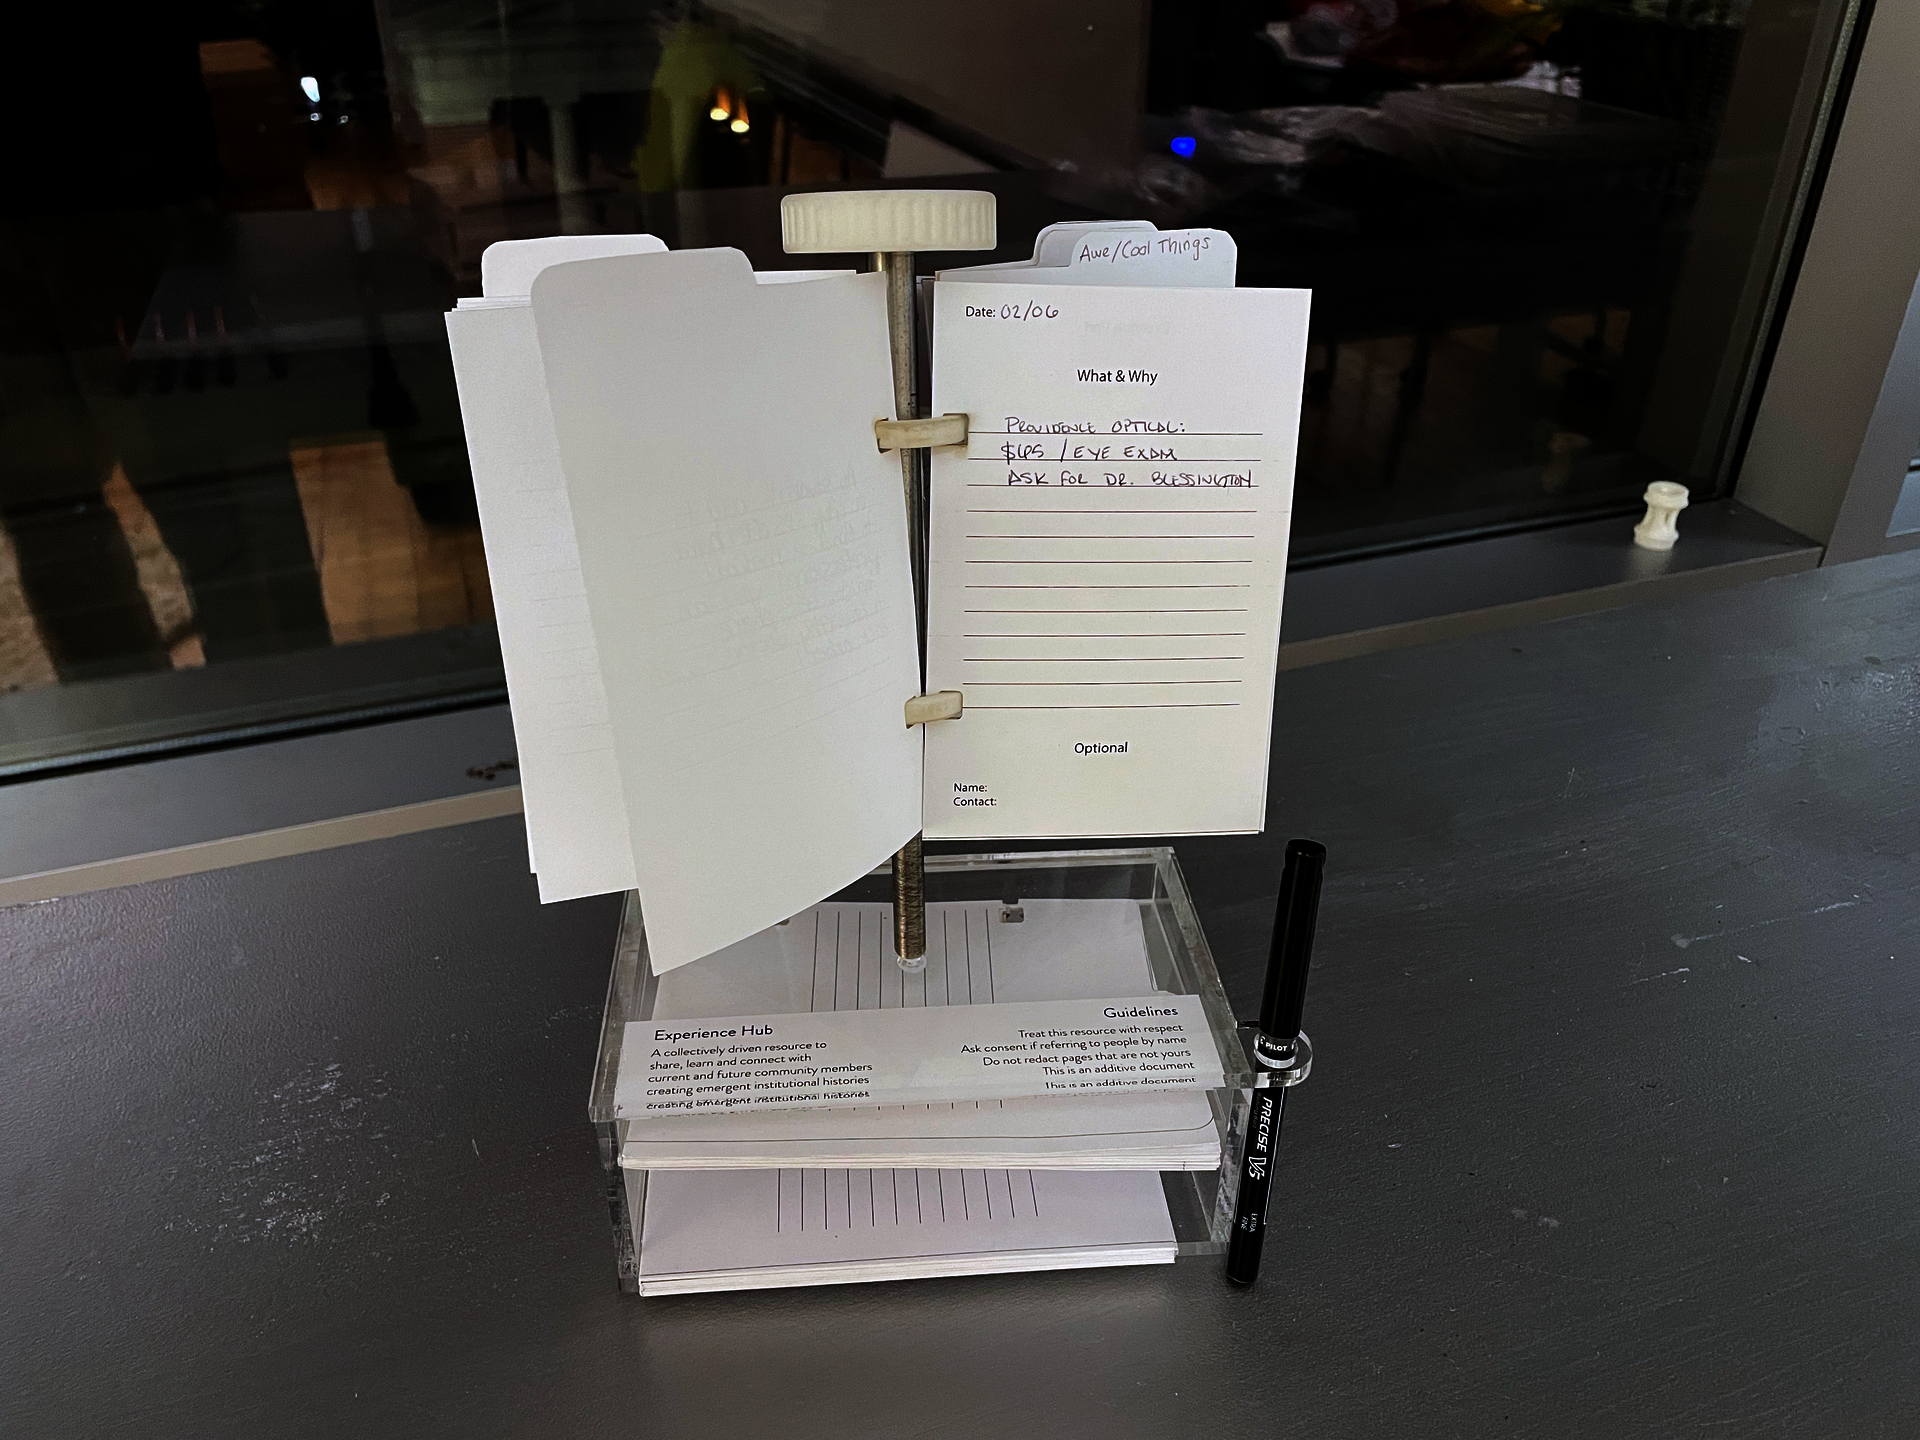 Awe/Cool Things
Date: 02/06
What & Why
PROVIDENCE OPTICAL:
$65 / EYE EXAM
ASK FOR DR. BLESSINGTON
Optional
Name:
Contact:
Experience Hub
A collectively driven resource to
share, learn and connect with
current and future community members
creating emergent institutional histories
creating emergent institutional histories
Guidelines
Treat this resource with respect
Ask consent if referring to people by name
Do not redact pages that are not yours
This is an additive document
This is an additive document
PILOT
PRECISE V5
EXTRA
FINE